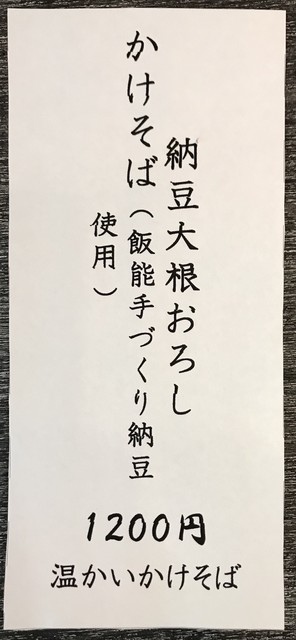 納豆大根おろし
かけそば（飯能手づくり納豆
使用）
1200円
温かいかけそば